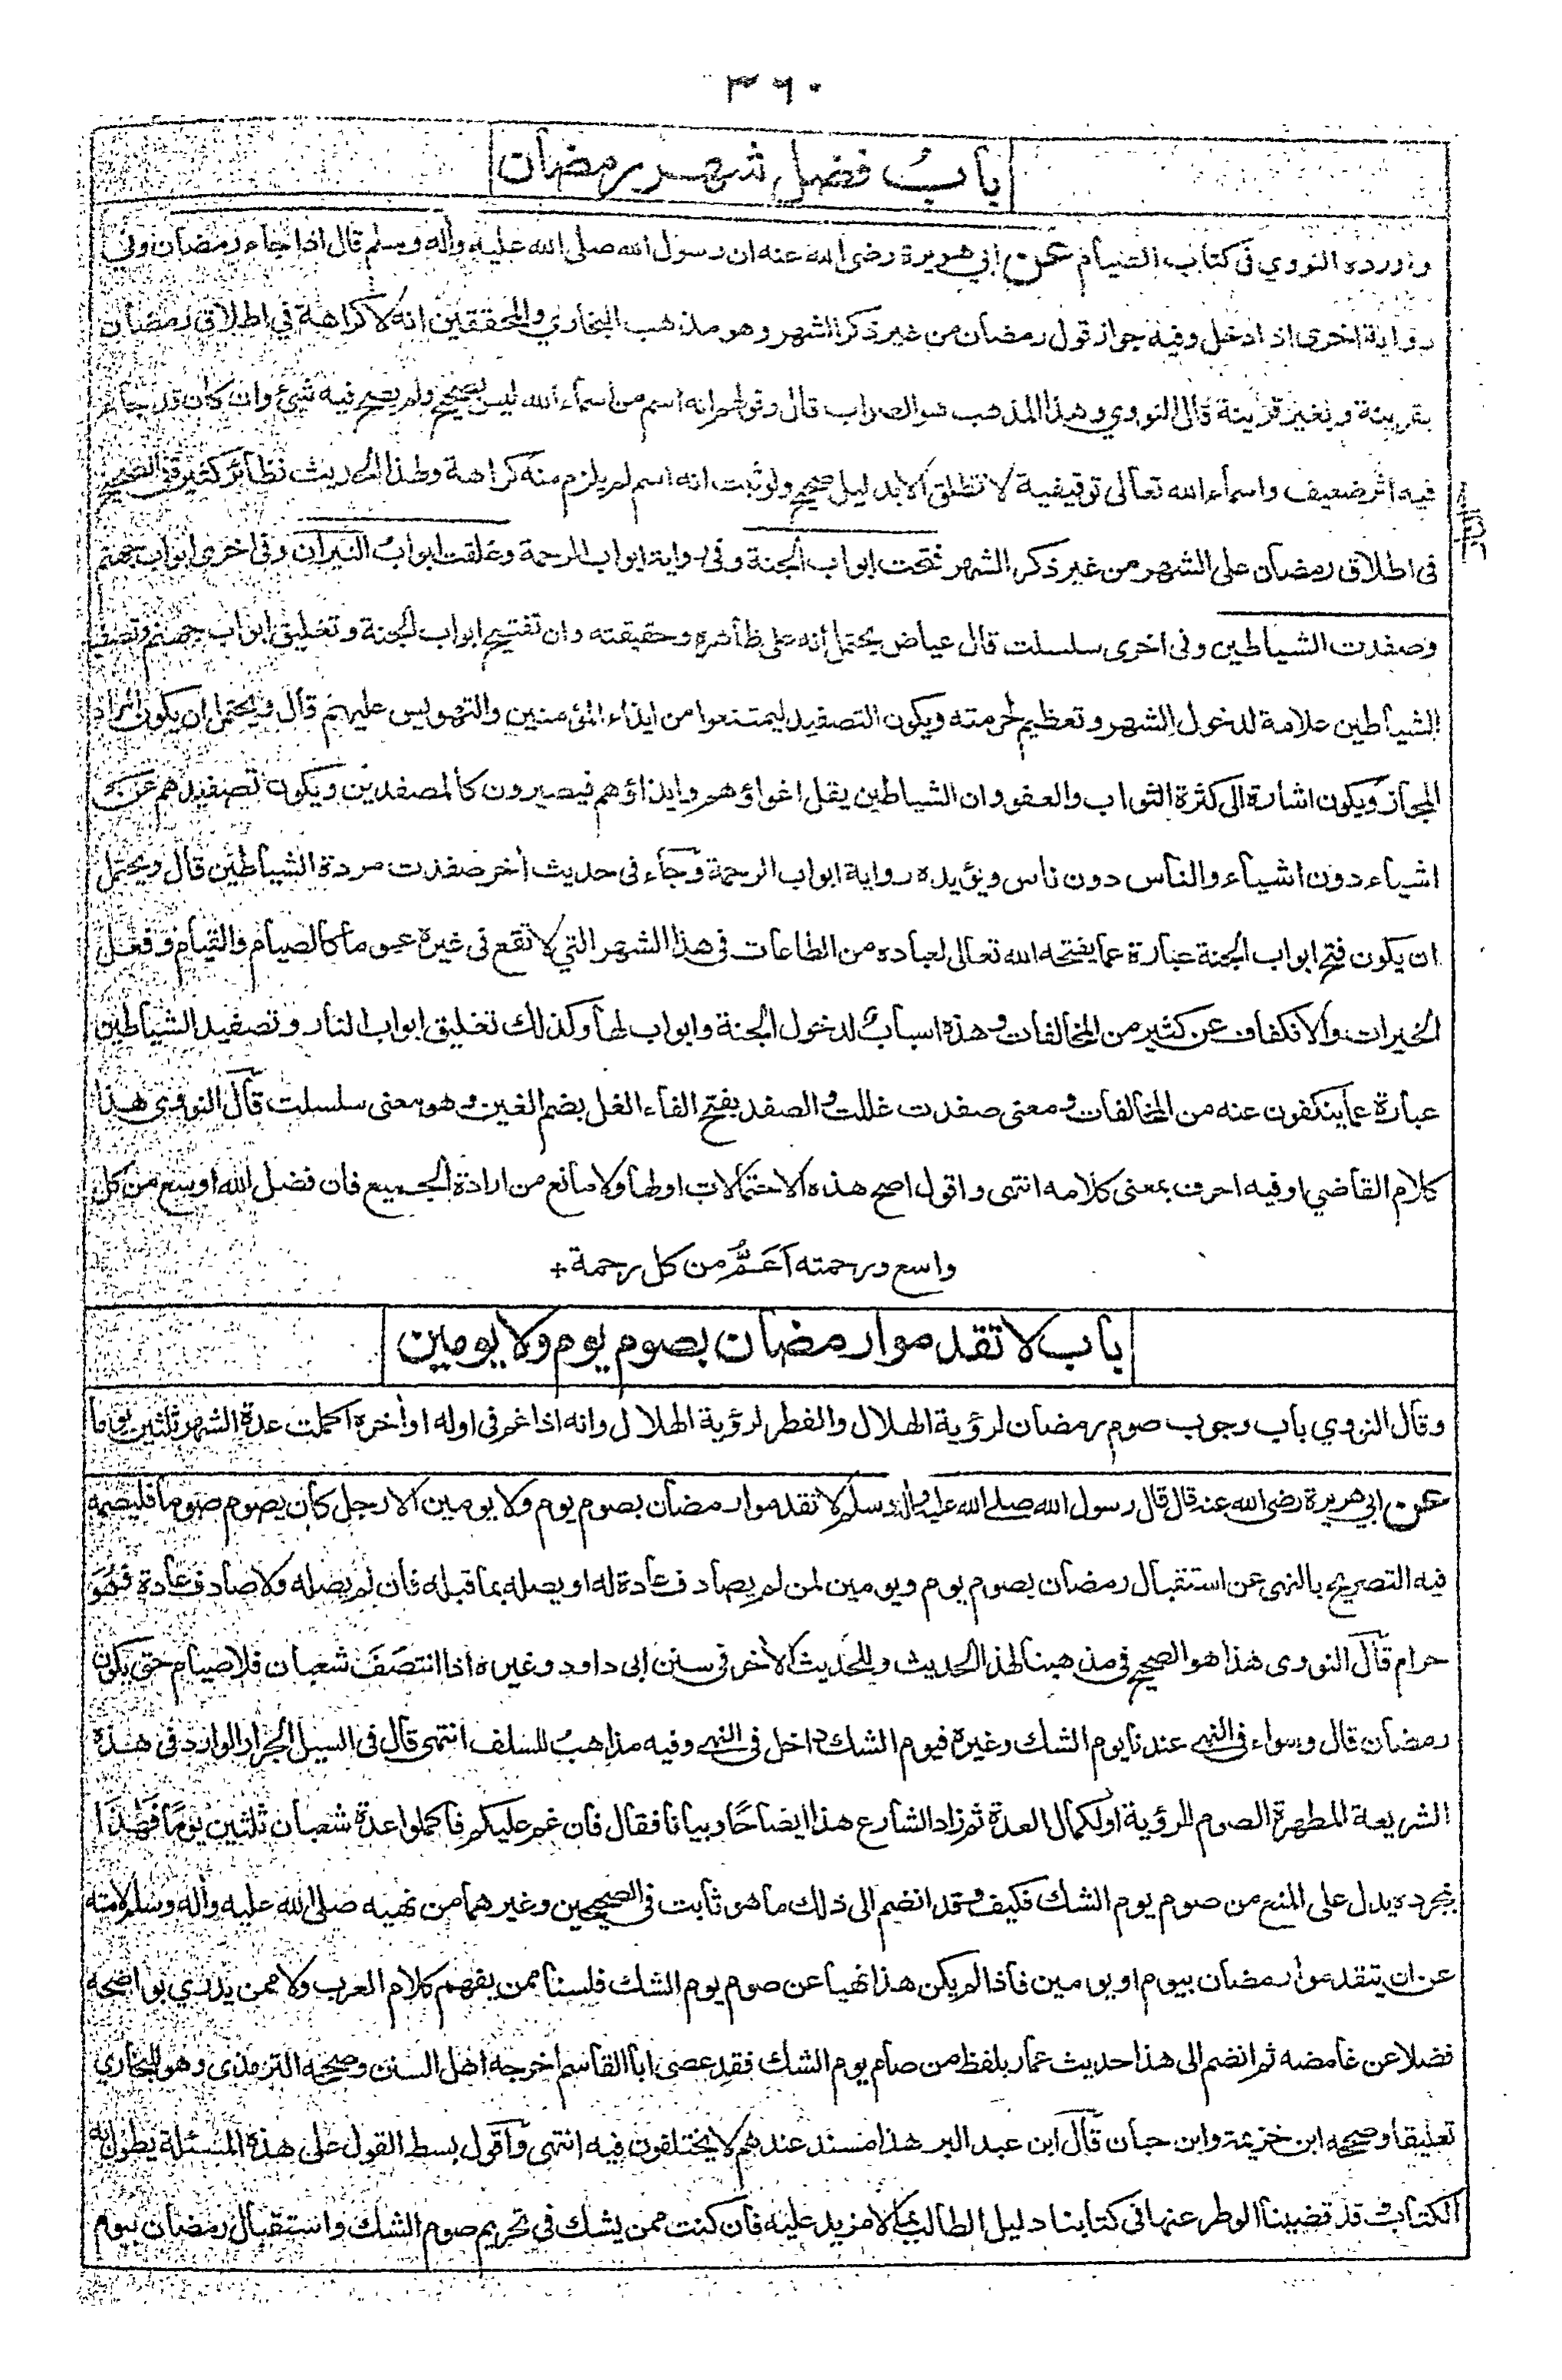 ٣٦٠
باب فضل شهر رمضان
واورده النووي فى كتاب الصيام عن ابي هريرة رضى الله عنه ان رسول الله صلى الله عليه واله وسلم قال اذا جاء رمضان وفى
رواية اخرى اذا دخل وفيه جواز قول رمضان من غير ذكر الشهر وهو مذهب البخاري والمحققين انه لا كراهة في اطلاق رمضان
بقرينة وبغير قرينة قال النووي وهذا المذهب هو الصواب قال وقولهم انه اسم من اسماء الله ليس بصحيح ولم يصح فيه شئ وان كان قد جاء
فيه اثر ضعيف واسماء الله تعالى توقيفية لا تطلق الا بدليل صحيح ولو ثبت انه اسم لم يلزم منه كراهة ولهذا الحديث نظائر كثيرة فى الصحيح
فى اطلاق رمضان على الشهر من غير ذكر الشهر فتحت ابواب الجنة وفى رواية ابواب الرحمة وغلقت ابواب النيران وفى اخرى ابواب جهنم
وصفدت الشياطين وفى اخرى سلسلت قال عياض يحتمل انه على ظاهره وحقيقته وان تفتيح ابواب الجنة وتغليق ابواب جهنم وتصفيد
الشياطين علامة لدخول الشهر وتعظيم لحرمته ويكون التصفيد ليمتنعوا من ايذاء المؤمنين والتهويس عليهم قال ويحتمل ان يكون المراد
المجاز ويكون اشارة الى كثرة الثواب والعفو وان الشياطين يقل اغواؤهم وايذاؤهم فيصيرون كالمصفدين ويكون تصفيدهم عن
اشياء دون اشياء والناس دون ناس ويؤيده رواية ابواب الرحمة وجاء فى حديث اخر صفدت مردة الشياطين قال ويحتمل
ان يكون فتح ابواب الجنة عبارة عما يفتحه الله تعالى لعباده من الطاعات فى هذا الشهر التي لا تقع فى غيره عموما كالصيام والقيام وفعل
الخيرات والانكفاف عن كثير من المخالفات وهذه اسباب لدخول الجنة وابواب لها وكذلك تغليق ابواب النار وتصفيد الشياطين
عبارة عما ينكفون عنه من المخالفات ومعنى صفدت غللت والصفد بفتح الفاء الغل بضم الغين وهو معنى سلسلت قال النووى هذا
كلام القاضي او فيه احرف بمعنى كلامه انتهى واقول اصح هذه الاحتمالات اولها ولا مانع من ارادة الجميع فان فضل الله اوسع من كل
واسع ورحمته اَعَمُّ من كل رحمة +
باب لا تقدموا رمضان بصوم يوم ولا يومين
وقال النووي باب وجوب صوم رمضان لرؤية الهلال والفطر لرؤية الهلال وانه اذا غم فى اوله او اخره اكملت عدة الشهر ثلثين يوما
عن ابي هريرة رضى الله عنه قال قال رسول الله صلے الله عليه واله وسلم لا تقدموا رمضان بصوم يوم ولا يومين الا رجل كان يصوم صوما فليصمه
فيه التصريح بالنهى عن استقبال رمضان بصوم يوم ويومين لمن لم يصادف عادة له او يصله بما قبله فان لم يصله ولا صادف عادة فهو
حرام قال النووى هذا هو الصحيح فى مذهبنا لهذا الحديث وللحديث الاخر فى سنن ابى داود وغيره اذا انتصف شعبان فلا صيام حتى يكون
رمضان قال وسواء فى النهے عندنا يوم الشك وغيره فيوم الشك داخل فى النهے وفيه مذاهب للسلف انتهى قال فى السيل الجرار الوارد فى هذه
الشريعة المطهرة الصوم للرؤية او لكمال العدة ثم زاد الشارع هذا ايضاحًا وبيانا فقال فان غم عليكم فاكملوا عدة شعبان ثلثين يومًا فهذا
بمجرده يدل على المنع من صوم يوم الشك فكيف وقد انضم الى ذلك ما هو ثابت فى الصحيحين وغيرهما من نهيه صلى الله عليه واله وسلم لامته
عن ان يتقدموا رمضان بيوم او يومين فاذا لم يكن هذا نهيا عن صوم يوم الشك فلسنا ممن يفهم كلام العرب ولا ممن يدري بواضحه
فضلا عن غامضه ثم انضم الى هذا حديث عمار بلفظ من صام يوم الشك فقد عصى ابا القاسم اخرجه اهل السنن وصححه الترمذى وهو للبخاري
تعليقا وصححه ابن خزيمة وابن حبان قال ابن عبد البر هذا مسند عندهم لا يختلفون فيه انتهى واقول بسط القول على هذه المسئلة يطول به
الكتاب وقد قضينا الوطر عنها فى كتابنا دليل الطالب بما لا مزيد عليه فان كنت ممن يشك فى تحريم صوم الشك واستقبال رمضان بيوم